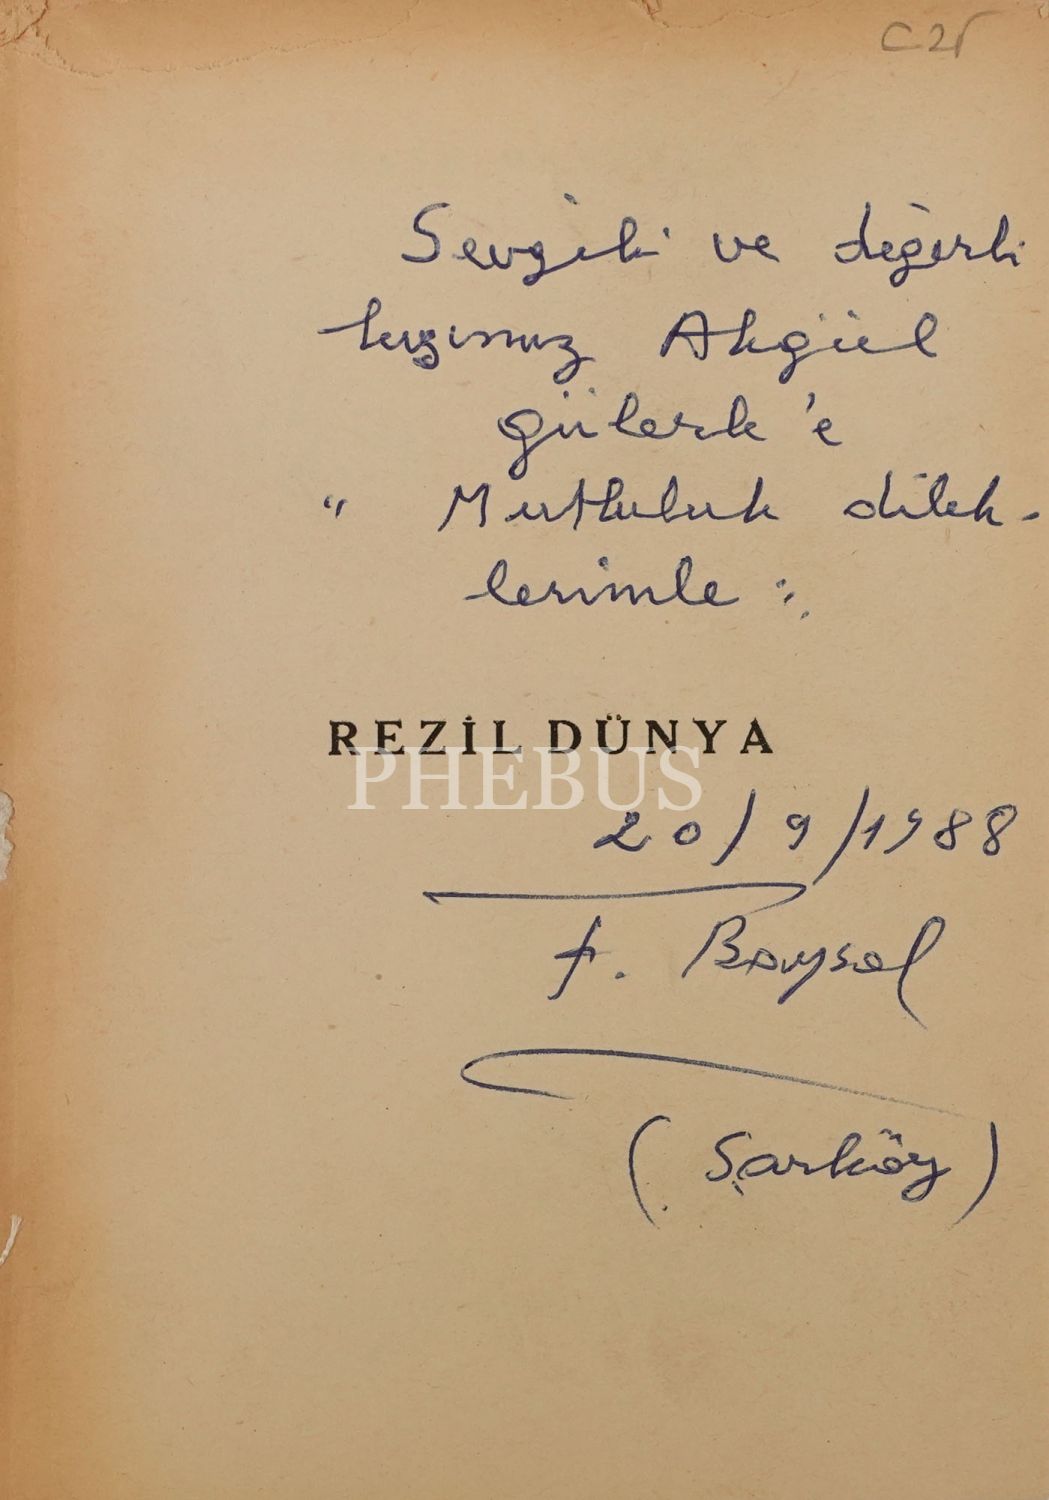 C25
Sevgili ve değerli
kızımız Akgül
gülerk'e
" Mutluluk dilek-
lerimle "
REZİL DÜNYA
PHEBUS
20/9/1988
F. Baysal
(Şarköy)